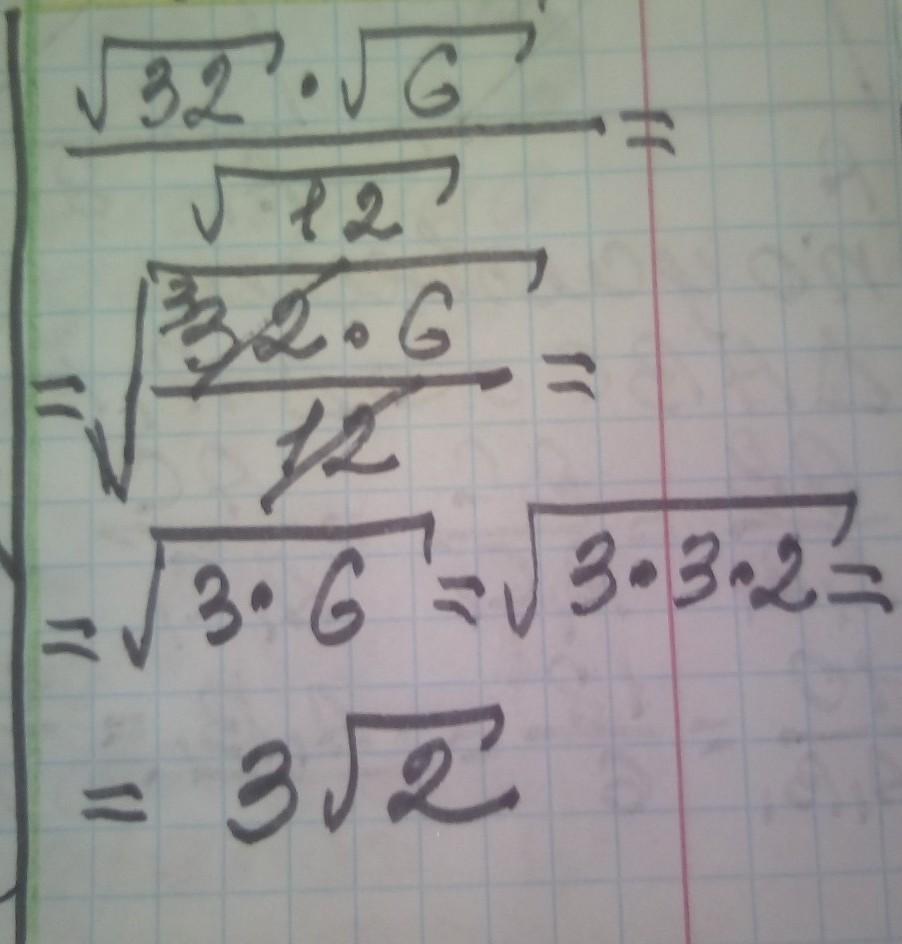 √32 · √6
=
√12
3
= √32 · 6 =
12
= √3 · 6 = √3 · 3 · 2 =
= 3√2